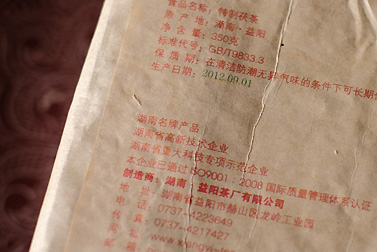 食品名称：特制茯茶
原 产 地：湖南·益阳
净 含 量：350克
标准代号：GB/T9833.3
保 质 期：在清洁防潮无异气味的条件下可长期
生产日期：2012.09.01
湖南名牌产品
湖南省高新技术企业
湖南省重大科技专项示范企业
本企业已通过ISO9001：2008国际质量管理体系认证
制造商：湖南 益阳茶厂有限公司
地 址：湖南省益阳市赫山区龙岭工业园
电 话：0737-4223649
传 真：0737-4217427
网 址：www.
邮